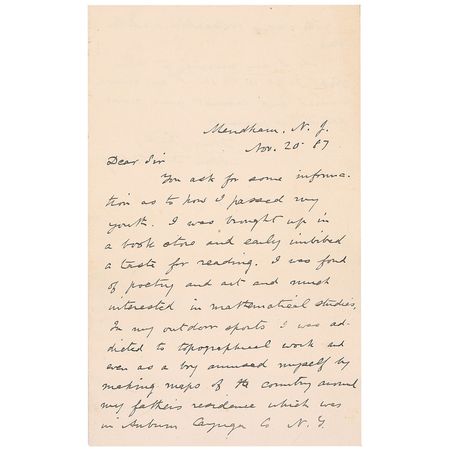 Mendham, N. J.
Nov. 20 87
Dear Sir
You ask for some informa-
tion as to how I passed my
youth. I was brought up in
a book store and early imbibed
a taste for reading. I was fond
of poetry and art and much
interested in mathematical studies.
In my outdoor sports I was ad-
dicted to topographical work and
even as a boy amused myself by
making maps of the country around
my fathers residence which was
in Auburn Cayuga Co N. Y.